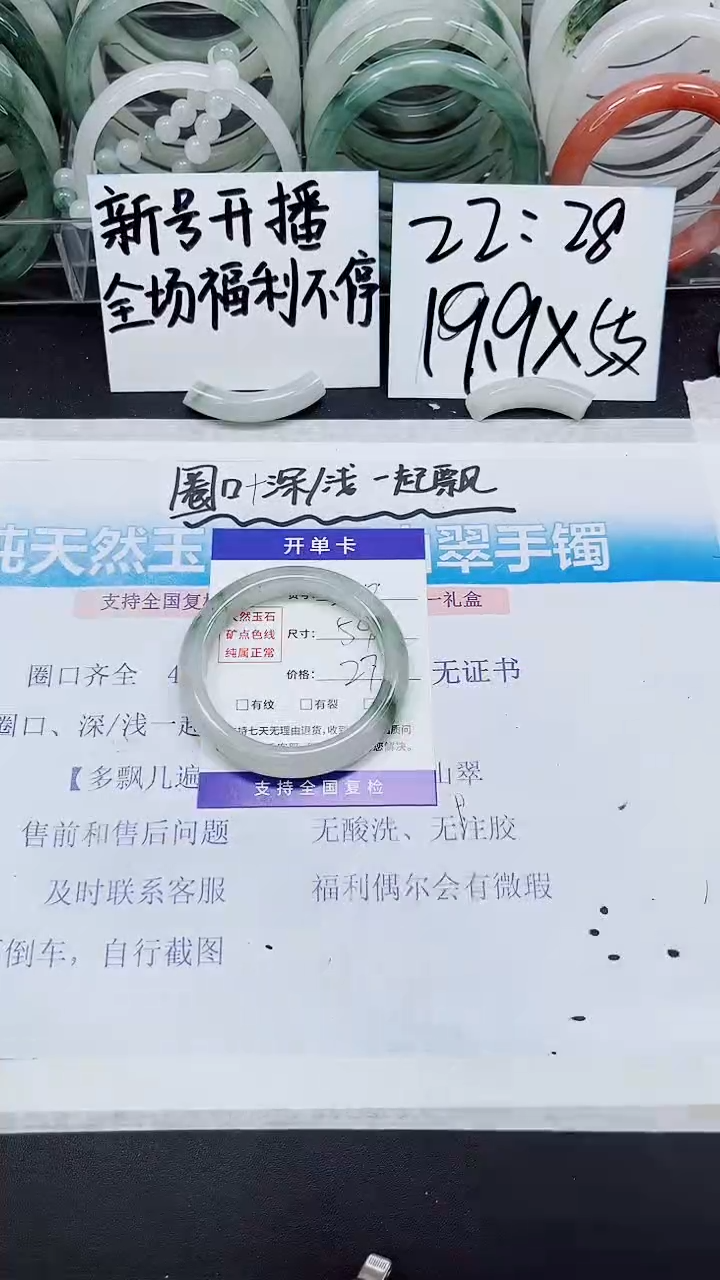 新号开播
全场福利不停
22:28
19.9×5支
圈口+深/浅一起飘
纯天然玉 山翠手镯
开单卡
支持全国复检 一礼盒
天然玉石
矿点色线
纯属正常
尺寸:
价格: 27
圈口齐全 4 无证书
□有纹 □有裂
圈口、深/浅一起
【多飘几遍 山翠
支持全国复检
售前和售后问题 无酸洗、无注胶
及时联系客服 福利偶尔会有微瑕
倒车，自行截图